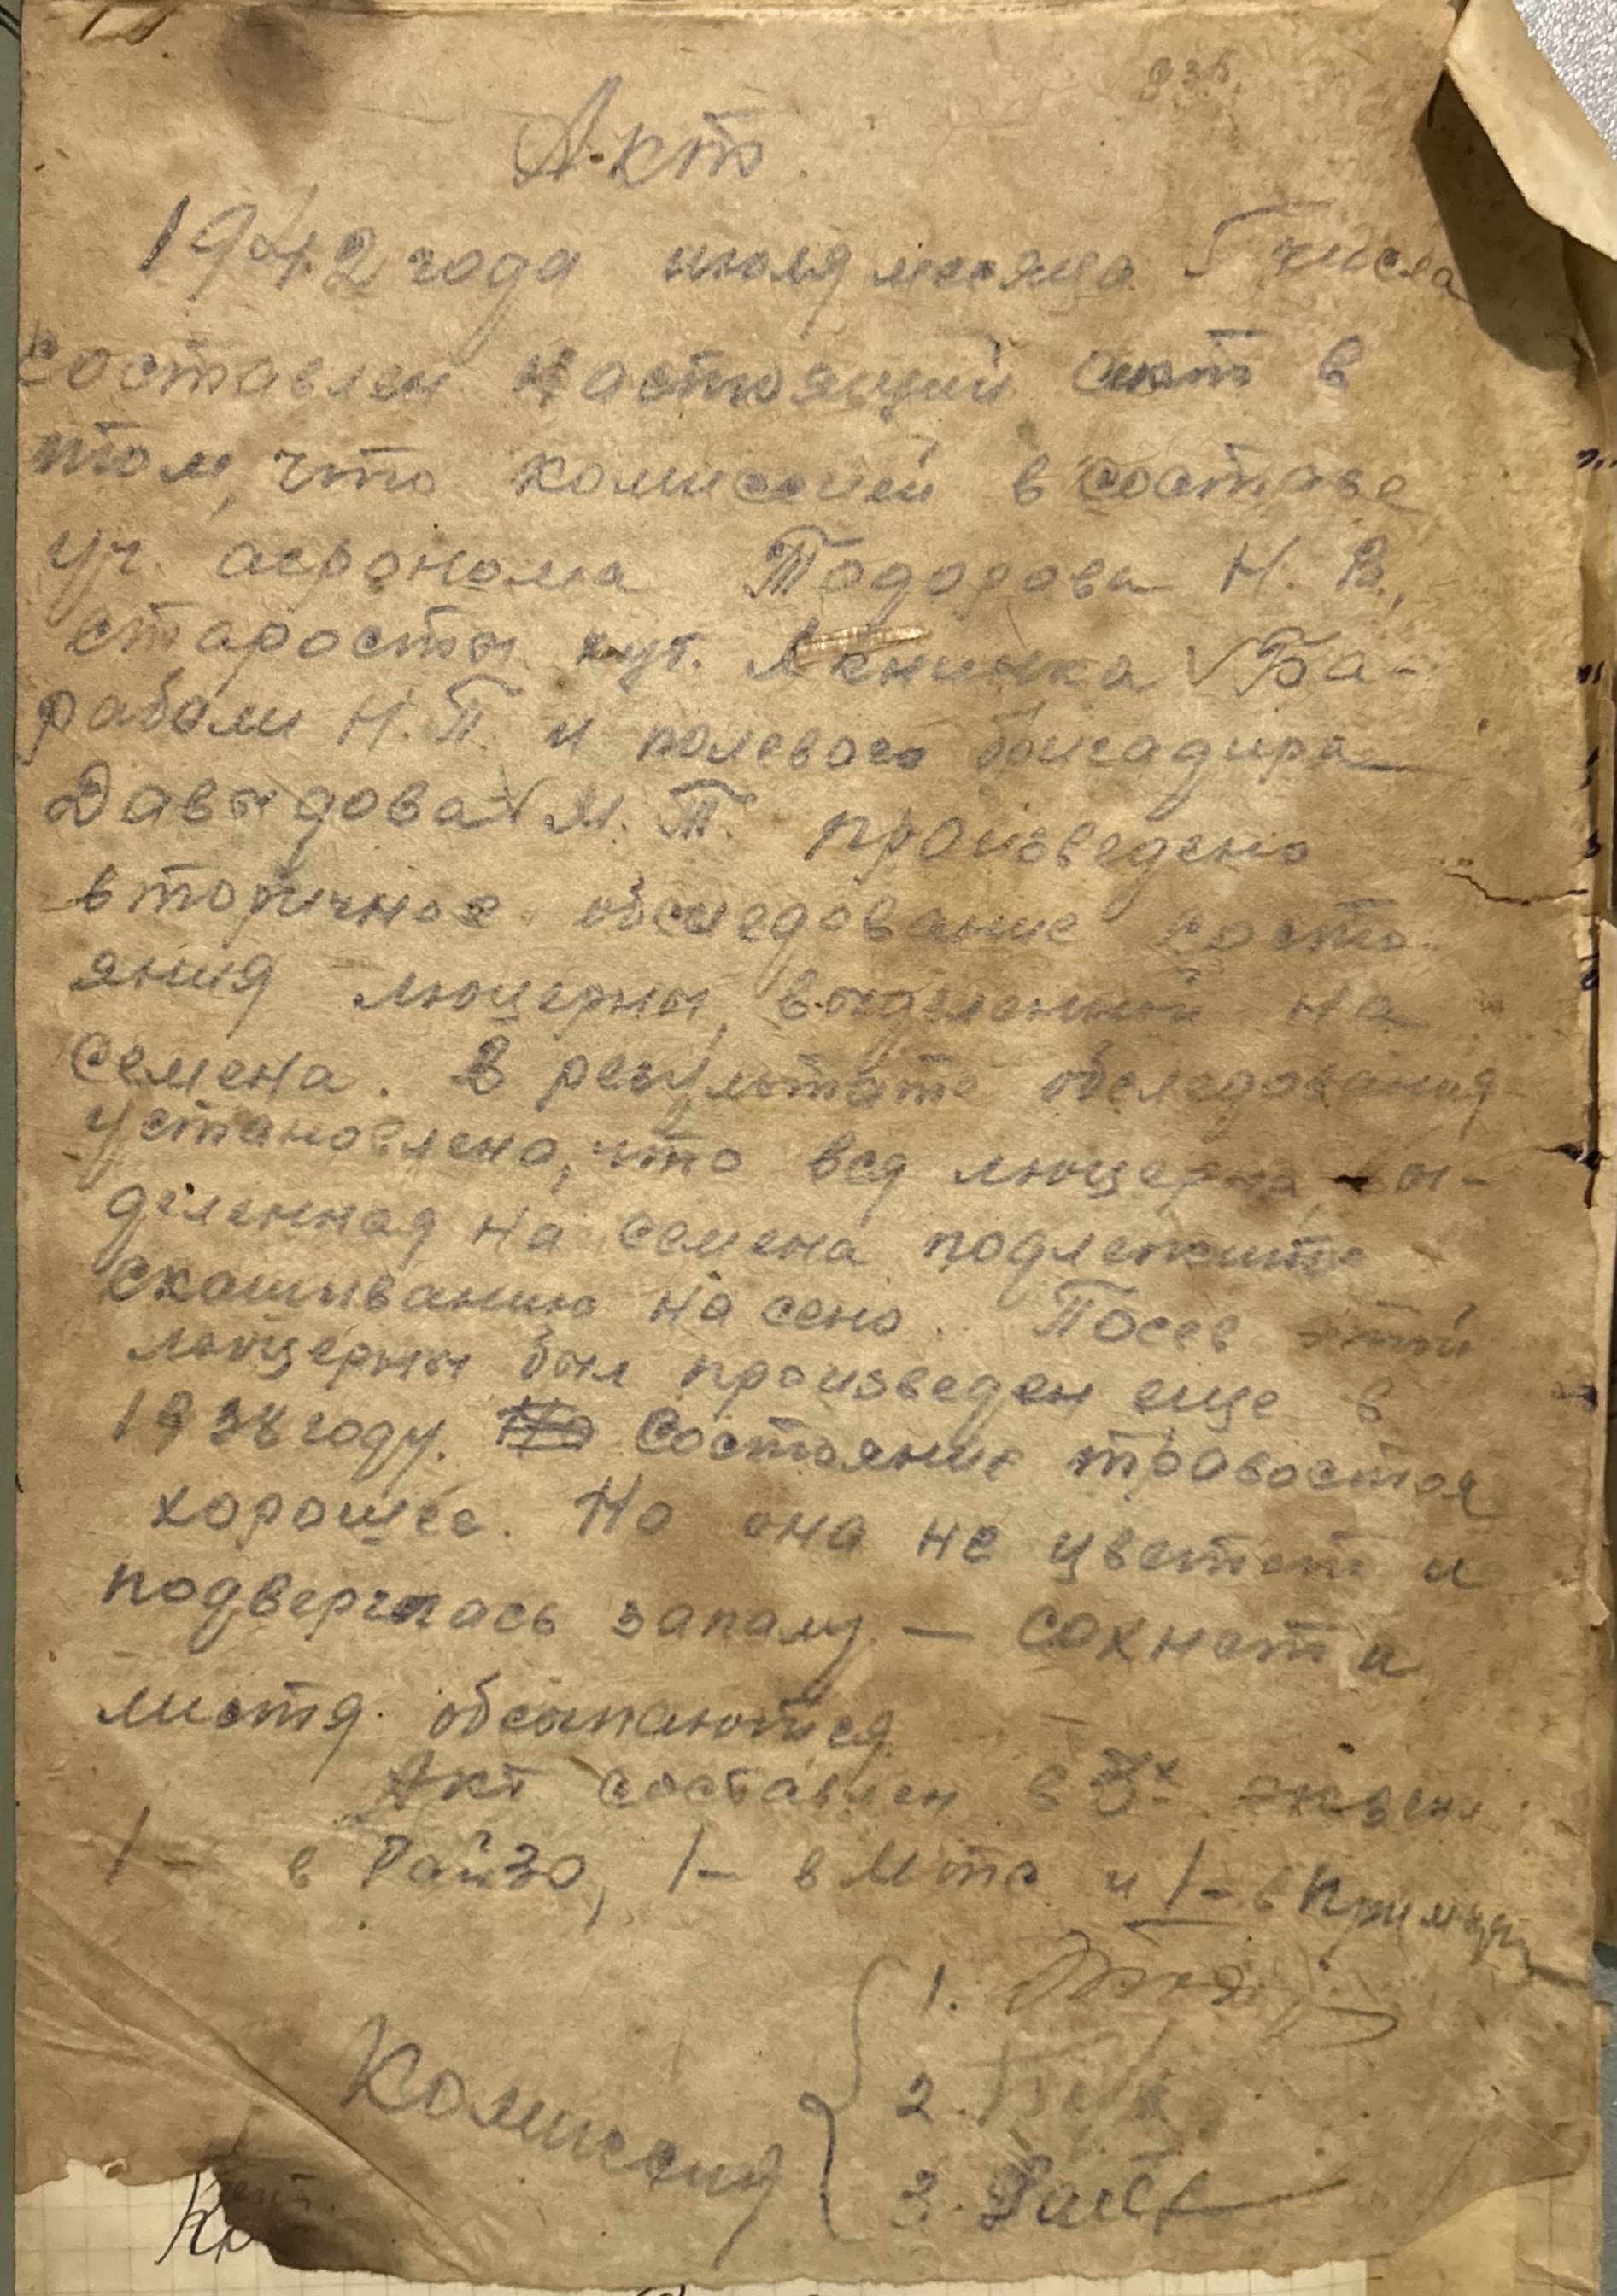 Акт
1942 года июля месяца 5 числа
составлен настоящий акт в
том, что комиссией в составе
уч. агронома Тодорова Н. В.,
старосты хут. Ба-
рабаш Н. П. и полевого бригадира
Давыдова М. Т. произведено
вторичное обследование состо-
яния люцерны, выделенной на
семена. В результате обследования
установлено, что вся люцерна, вы-
деленная на семена подлежит
скашиванию на сено. Посев этой
люцерны был произведен еще в
1938 году. Состояние травостоя
хорошее. Но она не цветет и
подверглась запалу — сохнет и
листя обсыпаются
Акт составлен в 3х экземп.
1 – в РайЗО, 1 – в Мтс и 1 – в
Комиссия
1.
2.
3.